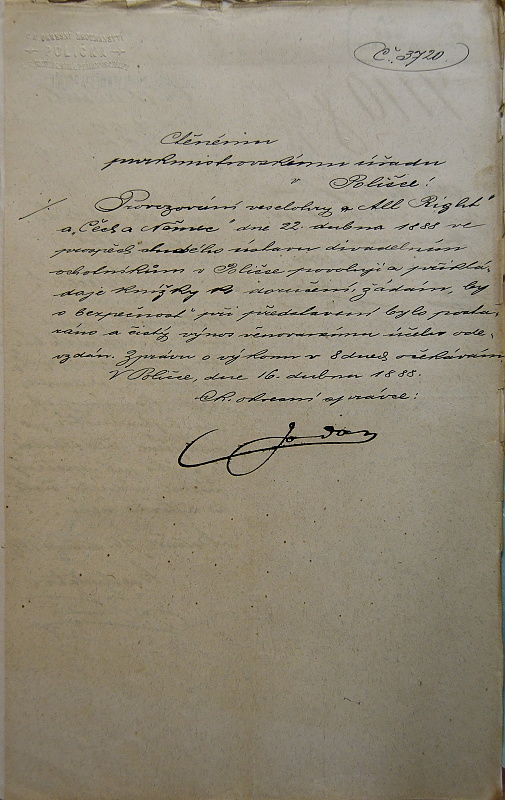 Č. 3720.
Ctěnému
purkmistrovskému úřadu
v Poličce!
Provozování veselohry „All Right"
a „Čech a Němec" dne 22. dubna 1888 ve
prospěch chudého ústavu divadelním
ochotníkům v Poličce povoluji a přiklá-
daje knížky k doručení, žádám, by
o bezpečnost při představení bylo posta-
ráno a čistý výnos věnovanému účelu ode-
vzdán. Zprávu o výkonu v 8 dnech očekávám
V Poličce, dne 16. dubna 1888.
Ck. okresní správce: